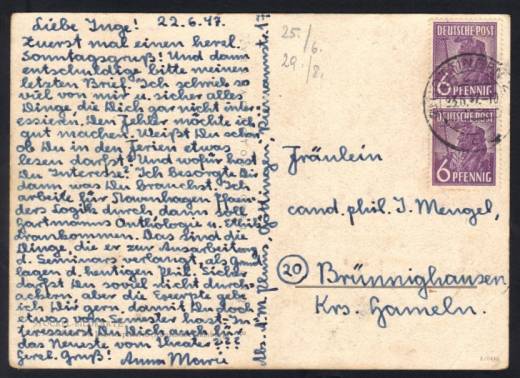 Liebe Inge! 22.6.47.
Zuerst mal einen herzl.
Sonntagsgruß! Und dann
entschuldige bitte meinen
letzten Brief. Ich schrieb so
viel von mir u. sicher alles
Dinge die Dich gar nicht inter-
essieren. Den Fehler möchte ich
gut machen. Weißt Du schon
ob Du in den Ferien etwas
lesen darfst? Und wofür hast
Du Interesse? Ich besorgte Dir
dann was Du brauchst. Ich
arbeite für
ders Logik durch dann soll
Hartmanns Onthologie u. Ethik
drankommen. Das sind die
Dinge, die er zur Ausarbeitung
d. Seminars verlangt, als Grund
lagen d. heutigen Phil. Sicher
darfst Du soviel nicht durch-
ackern, aber die Exzerpte gebe
ich Dir gern, damit Du doch
etwas vom Semester hast. In-
teressierst Du Dich auch für
das Neueste vom Theater???
Herzl. Gruß! Anna Marie
Abs. A.M. Göttingen,
25./6.
29./8.
DEUTSCHE POST
6 PFENNIG
DEUTSCHE POST
6 PFENNIG
Fräulein
cand. phil. I. Mengel,
20 Brünnighausen
Krs. Hameln.